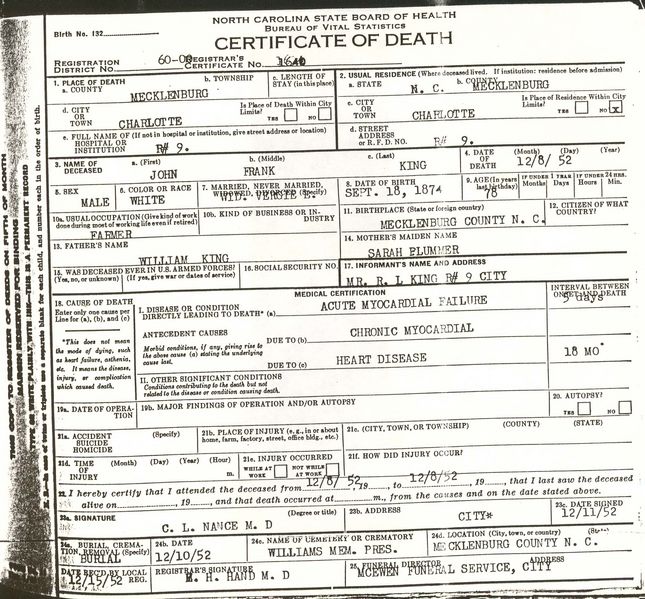 NORTH CAROLINA STATE BOARD OF HEALTH
BUREAU OF VITAL STATISTICS
Birth No. 132
CERTIFICATE OF DEATH
REGISTRATION DISTRICT NO. 60-00 REGISTRAR'S CERTIFICATE NO.
1. PLACE OF DEATH
a. COUNTY MECKLENBURG
b. TOWNSHIP
c. LENGTH OF STAY (in this place)
2. USUAL RESIDENCE (Where deceased lived. If institution: residence before admission)
a. STATE N. C.
b. COUNTY MECKLENBURG
d. CITY OR TOWN CHARLOTTE
Is Place of Death Within City Limits? YES NO
c. CITY OR TOWN CHARLOTTE
Is Place of Residence Within City Limits? YES NO X
e. FULL NAME OF (If not in hospital or institution, give street address or location) HOSPITAL OR INSTITUTION R# 9.
d. STREET ADDRESS or R.F.D. NO. R# 9.
3. NAME OF DECEASED
a. (First) JOHN
b. (Middle) FRANK
c. (Last) KING
4. DATE OF DEATH (Month) (Day) (Year) 12/8/ 52
5. SEX MALE
6. COLOR OR RACE WHITE
7. MARRIED, NEVER MARRIED, WIDOWED, DIVORCED (Specify) WID.
8. DATE OF BIRTH SEPT. 18, 1874
9. AGE (In years last birthday) 78
IF UNDER 1 YEAR Months Days
IF UNDER 24 HRS. Hours Min.
10a. USUAL OCCUPATION (Give kind of work done during most of working life even if retired) FARMER
10b. KIND OF BUSINESS OR INDUSTRY
11. BIRTHPLACE (State or foreign country) MECKLENBURG COUNTY N. C.
12. CITIZEN OF WHAT COUNTRY?
13. FATHER'S NAME WILLIAM KING
14. MOTHER'S MAIDEN NAME SARAH PLUMMER
15. WAS DECEASED EVER IN U.S. ARMED FORCES? (Yes, no, or unknown) (If yes, give war or dates of service)
16. SOCIAL SECURITY NO.
17. INFORMANT'S NAME AND ADDRESS MR. R. L KING R# 9 CITY
MEDICAL CERTIFICATION
INTERVAL BETWEEN ONSET AND DEATH
18. CAUSE OF DEATH
Enter only one cause per Line for (a), (b), and (c)
I. DISEASE OR CONDITION DIRECTLY LEADING TO DEATH* (a) ACUTE MYOCARDIAL FAILURE days
ANTECEDENT CAUSES
Morbid conditions, if any, giving rise to the above cause (a) stating the underlying cause last.
DUE TO (b) CHRONIC MYOCARDIAL
DUE TO (c) HEART DISEASE
18 MO
*This does not mean the mode of dying, such as heart failure, asthenia, etc. It means the disease, injury, or complication which caused death.
II. OTHER SIGNIFICANT CONDITIONS
Conditions contributing to the death but not related to the disease or condition causing death.
19a. DATE OF OPERATION
19b. MAJOR FINDINGS OF OPERATION AND/OR AUTOPSY
20. AUTOPSY?
YES NO
21a. ACCIDENT SUICIDE HOMICIDE (Specify)
21b. PLACE OF INJURY (e.g., in or about home, farm, factory, street, office bldg., etc.)
21c. (CITY, TOWN, OR TOWNSHIP) (COUNTY) (STATE)
21d. TIME OF INJURY (Month) (Day) (Year) (Hour) m.
21e. INJURY OCCURRED WHILE AT WORK NOT WHILE AT WORK
21f. HOW DID INJURY OCCUR?
22. I hereby certify that I attended the deceased from 12/8/ 52, 19 to 12/8/52, 19, that I last saw the deceased
alive on, 19, and that death occurred at m., from the causes and on the date stated above.
23a. SIGNATURE (Degree or title) C. L. NANCE M. D
23b. ADDRESS CITY*
23c. DATE SIGNED 12/11/52
24a. BURIAL, CREMATION, REMOVAL (Specify) BURIAL
24b. DATE 12/10/52
24c. NAME OF CEMETERY OR CREMATORY WILLIAMS MEM. PRES.
24d. LOCATION (City, town, or county) (State) MECKLENBURG COUNTY N. C.
DATE REC'D BY LOCAL REG. 12/15/52
REGISTRAR'S SIGNATURE M. H. HAND M. D
25. FUNERAL DIRECTOR ADDRESS MCEWEN FUNERAL SERVICE, CITY
THIS COPY TO REGISTER OF DEEDS ON FIFTH OF MONTH
MARGIN RESERVED FOR BINDING